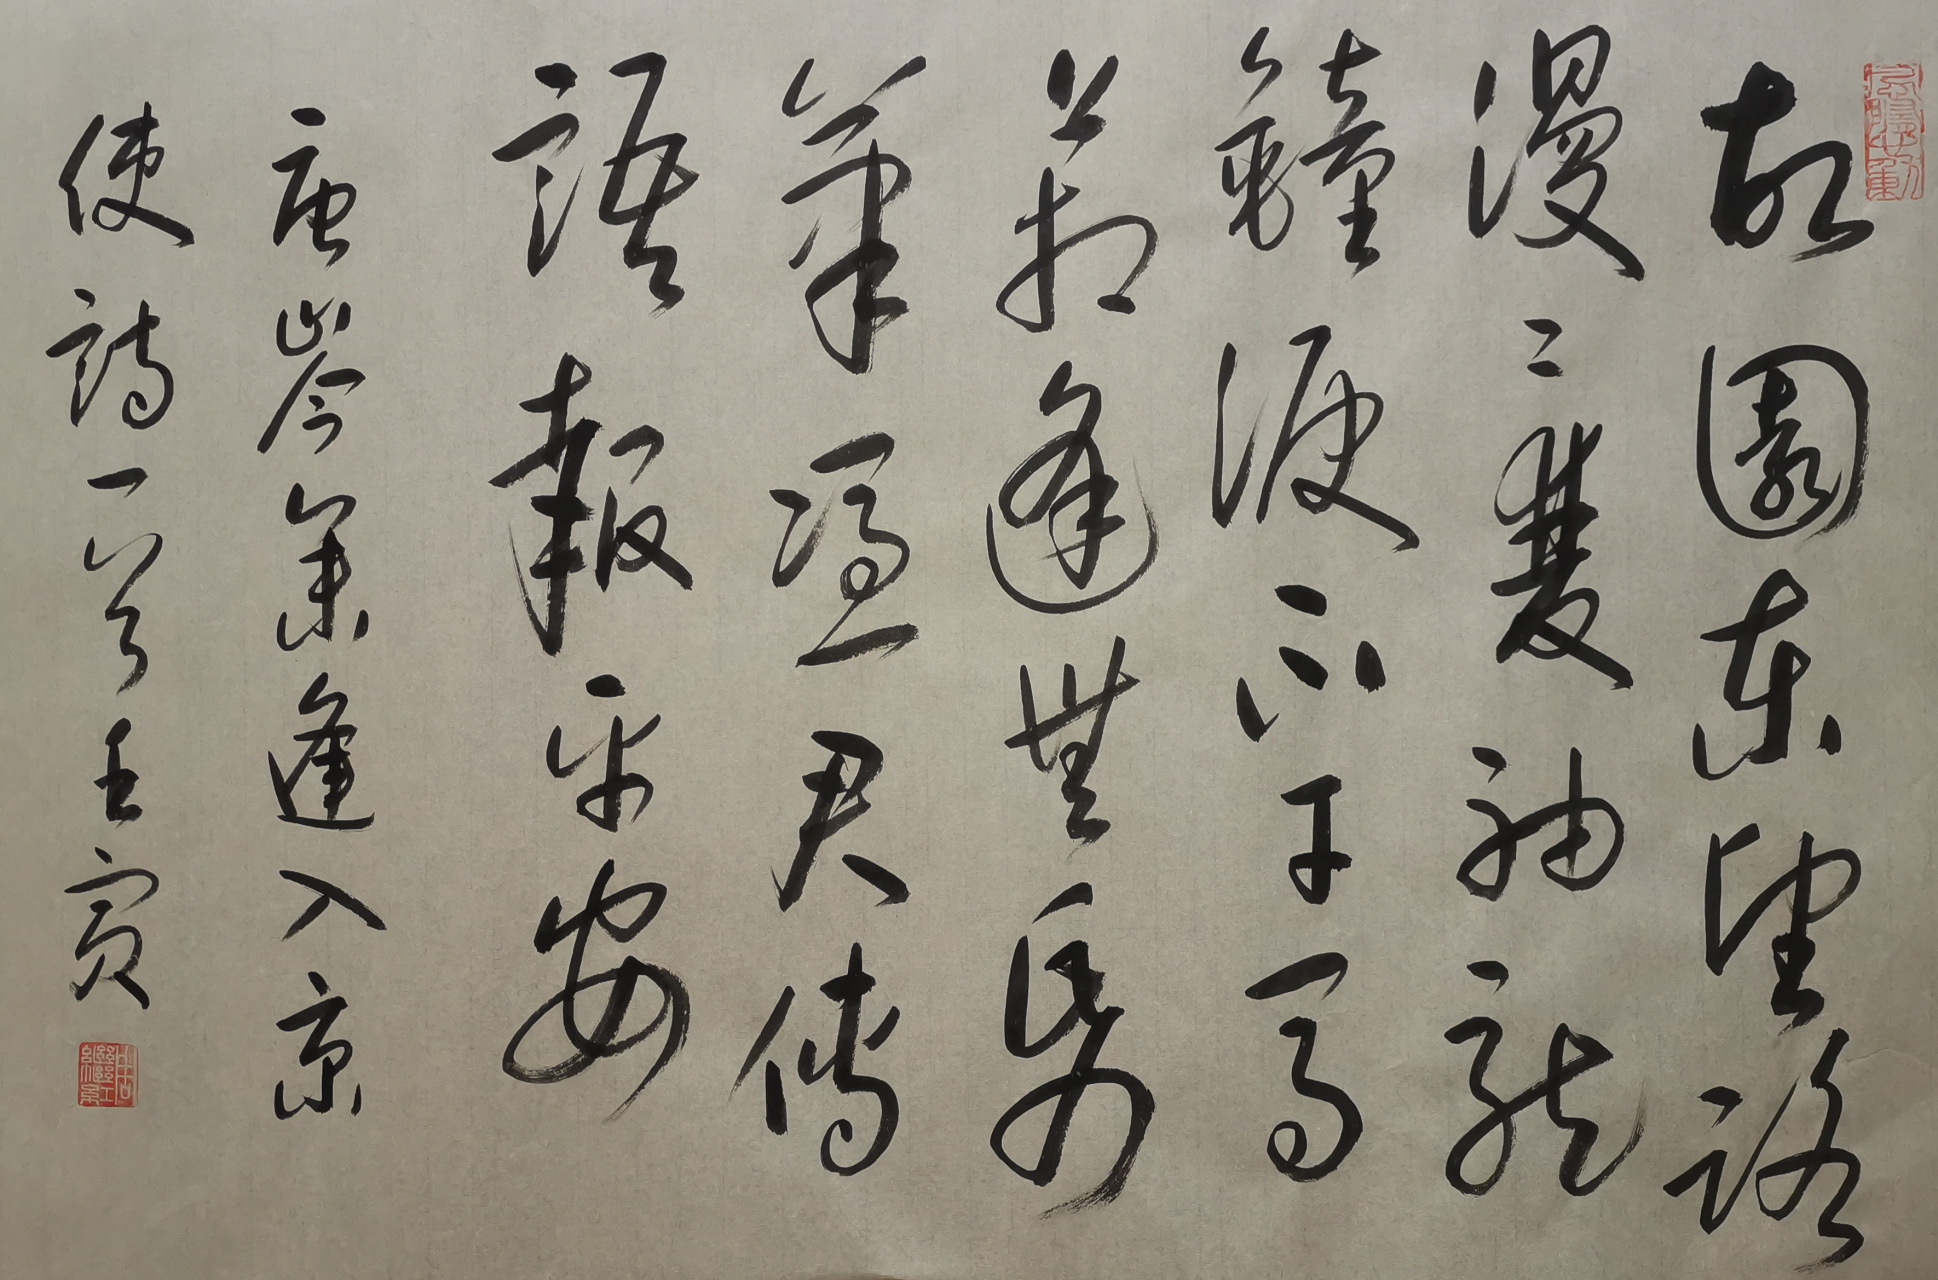 故園東望路
漫〻雙袖龍
鐘淚不干馬
上相逢無紙
筆憑君傳
語報平安
唐岑參逢入京
使詩一首壬寅